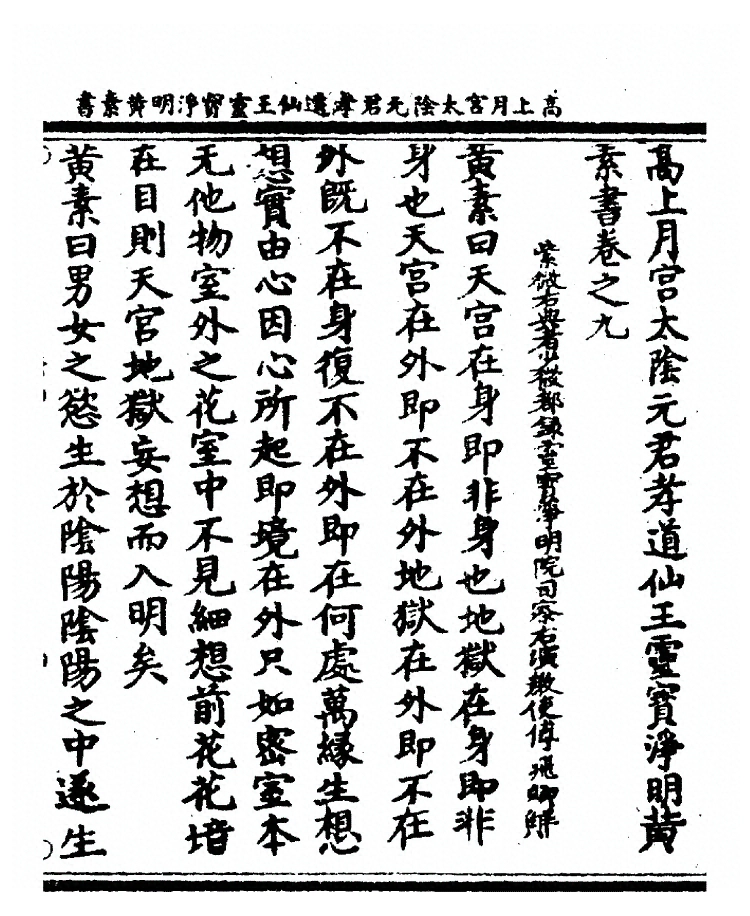 高上月宮太陰元君孝道仙王靈寳淨明黄素書
高上月宮太陰元君孝道仙王靈寳淨明黄
素書卷之九
紫微右 省 都録靈寳淨明院司察右演教使傅飛卿解
黄素曰天宮在身即非身也地獄在身即非
身也天宮在外即不在外地獄在外即不在
外既不在身復不在外即在何處萬縁生想
想實由心因心所起即境在外只如密室本
无他物室外之花室中不見細想前花花培
在目則天宮地獄妄想而入明矣
黄素曰男女之慾生於陰陽陰陽之中遂生